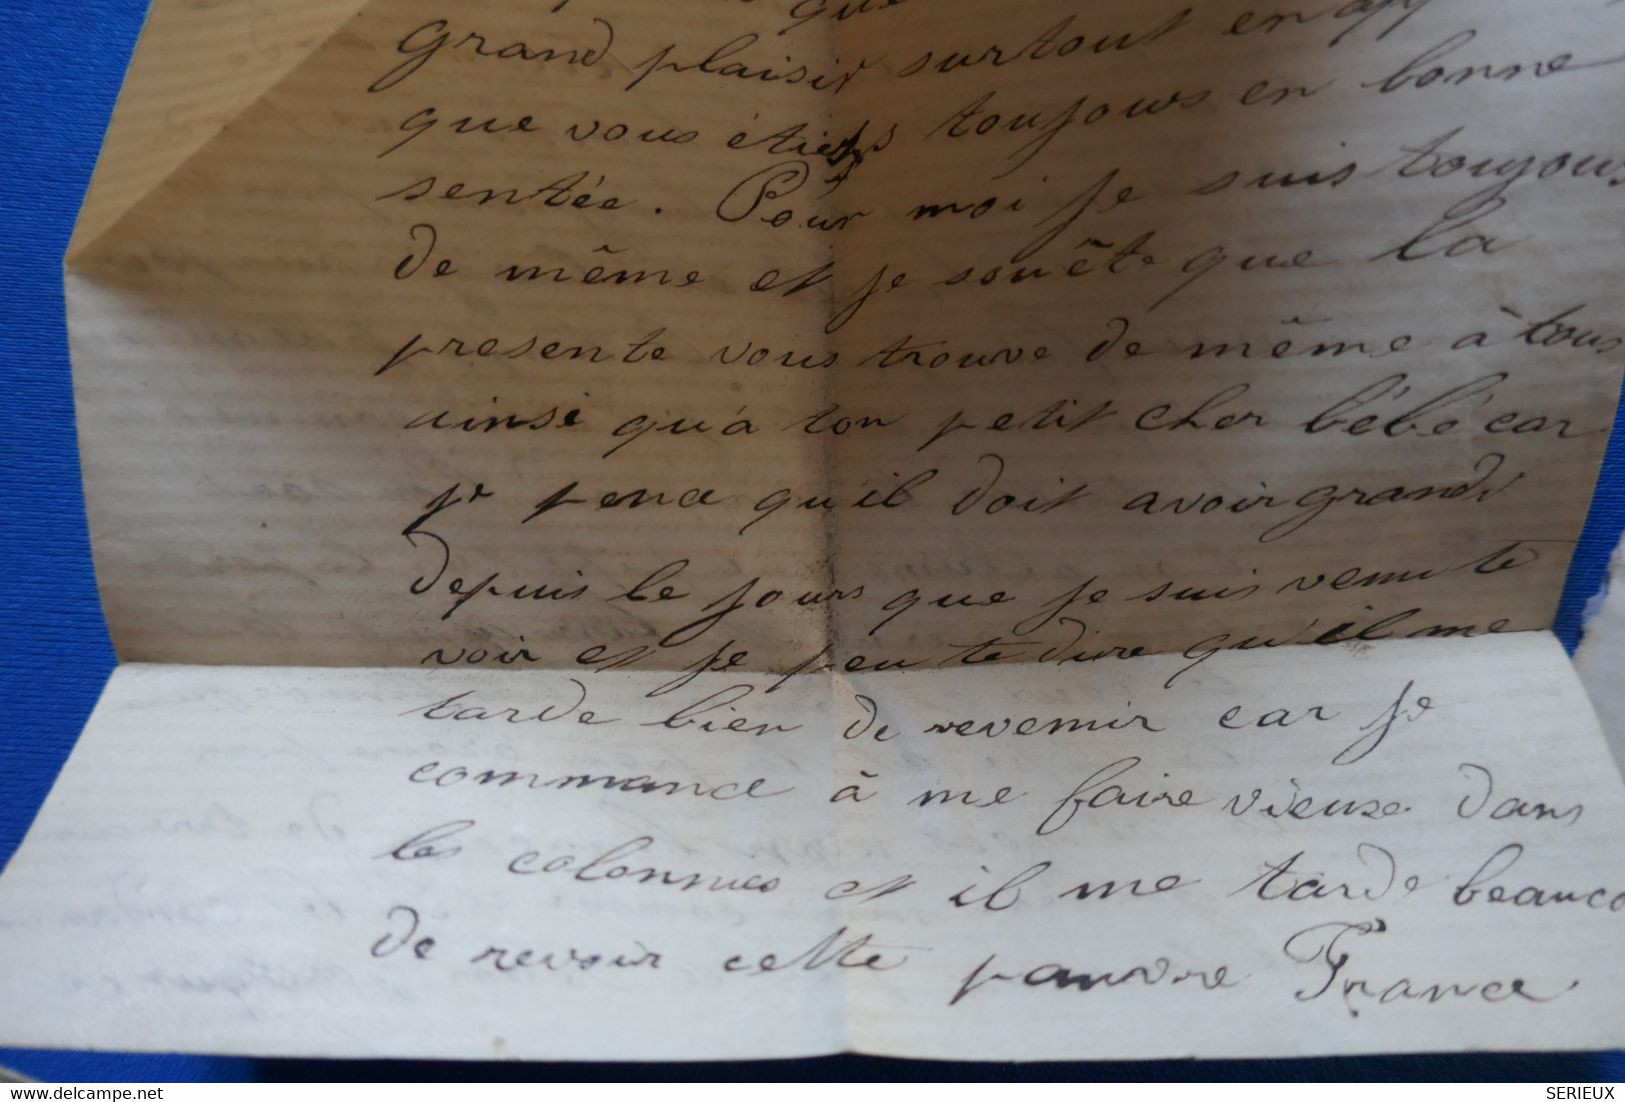 que
grand plaisir surtout en app
que vous étiess toujours en bonne
sentée. Pour moi je suis toujours
de même et je souête que la
presente vous trouve de même à tous
ainsi qu'a ton petit cher bébé car
je pence qu'il doit avoir grandi
depuis le jours que je suis venu te
voir et je peu te dire qu'il me
tarde bien de revenir car je
commance à me faire vieuse dans
les colonnies et il me tarde beauco
de revoir cette pauvre France
SERIEUX